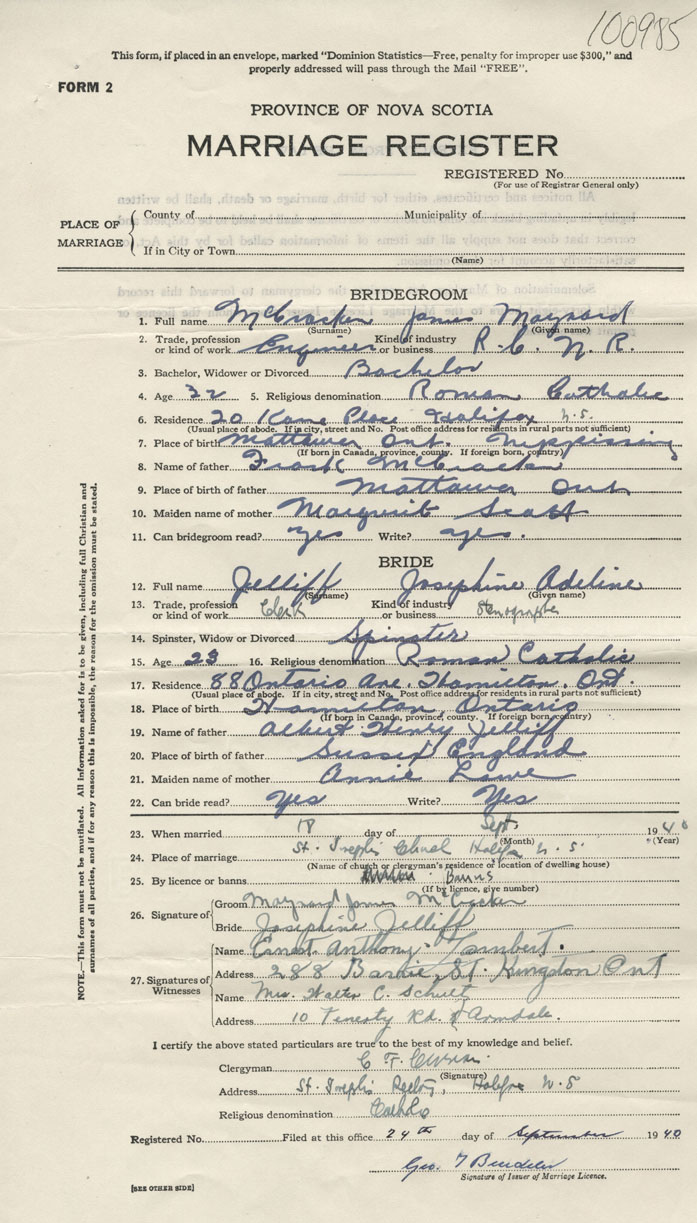 100985
This form, if placed in an envelope, marked "Dominion Statistics—Free, penalty for improper use $300," and
properly addressed will pass through the Mail "FREE".
FORM 2
PROVINCE OF NOVA SCOTIA
MARRIAGE REGISTER
REGISTERED No
(For use of Registrar General only)
PLACE OF MARRIAGE
County of Municipality of
If in City or Town
(Name)
BRIDEGROOM
1. Full name McCracken James Maynard
(Surname) (Given name)
2. Trade, profession or kind of work Engineer Kind of industry or business R. C. N. R.
3. Bachelor, Widower or Divorced Bachelor
4. Age 22 5. Religious denomination Roman Catholic
6. Residence 20 Kane Place Halifax N.S.
(Usual place of abode. If in city, street and No. Post office address for residents in rural parts not sufficient)
7. Place of birth Mattawa Ont. Nippissing
(If born in Canada, province, county. If foreign born, country)
8. Name of father Frank McCracken
9. Place of birth of father Mattawa Ont
10. Maiden name of mother Marguerit Scott
11. Can bridegroom read? yes Write? yes.
BRIDE
12. Full name Jelliff Josephine Adeline
(Surname) (Given name)
13. Trade, profession or kind of work Clerk Kind of industry or business Stenographer
14. Spinster, Widow or Divorced Spinster
15. Age 23 16. Religious denomination Roman Catholic
17. Residence 88 Ontario Ave. Hamilton, Ont.
(Usual place of abode. If in city, street and No. Post office address for residents in rural parts not sufficient)
18. Place of birth Hamilton, Ontario
(If born in Canada, province, county. If foreign born, country)
19. Name of father Albert Henry Jelliff
20. Place of birth of father Sussex England
21. Maiden name of mother Annie Lowe
22. Can bride read? Yes Write? Yes
23. When married 18 day of Sept. 1940
(Month) (Year)
24. Place of marriage St. Joseph's Church Halifax N. S.
(Name of church or clergyman's residence or location of dwelling house)
25. By licence or banns Banns
(If by licence, give number)
26. Signature of
Groom Maynard James McCracken
Bride Josephine Jelliff
27. Signatures of Witnesses
Name Ernest Anthony Lambert.
Address 288 St. Kingston Ont
Name Mrs. Walter C. Schultz
Address 10 Rd. Armdale.
I certify the above stated particulars are true to the best of my knowledge and belief.
Clergyman C F Curran
(Signature)
Address St. Joseph's Rectory, Halifax N. S
Religious denomination Catholic
Registered No. Filed at this office 24th day of September 1940
Geo.
Signature of Issuer of Marriage Licence.
[SEE OTHER SIDE]
NOTE.—This form must not be mutilated. All information asked for is to be given, including full Christian and
surnames of all parties, and if for any reason this is impossible, the reason for the omission must be stated.